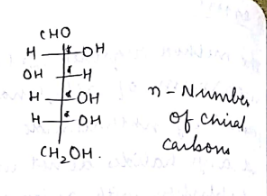 CHO
H OH
OH H
H OH
H OH
CH₂OH.
n - Number
of Chiral
Carbons